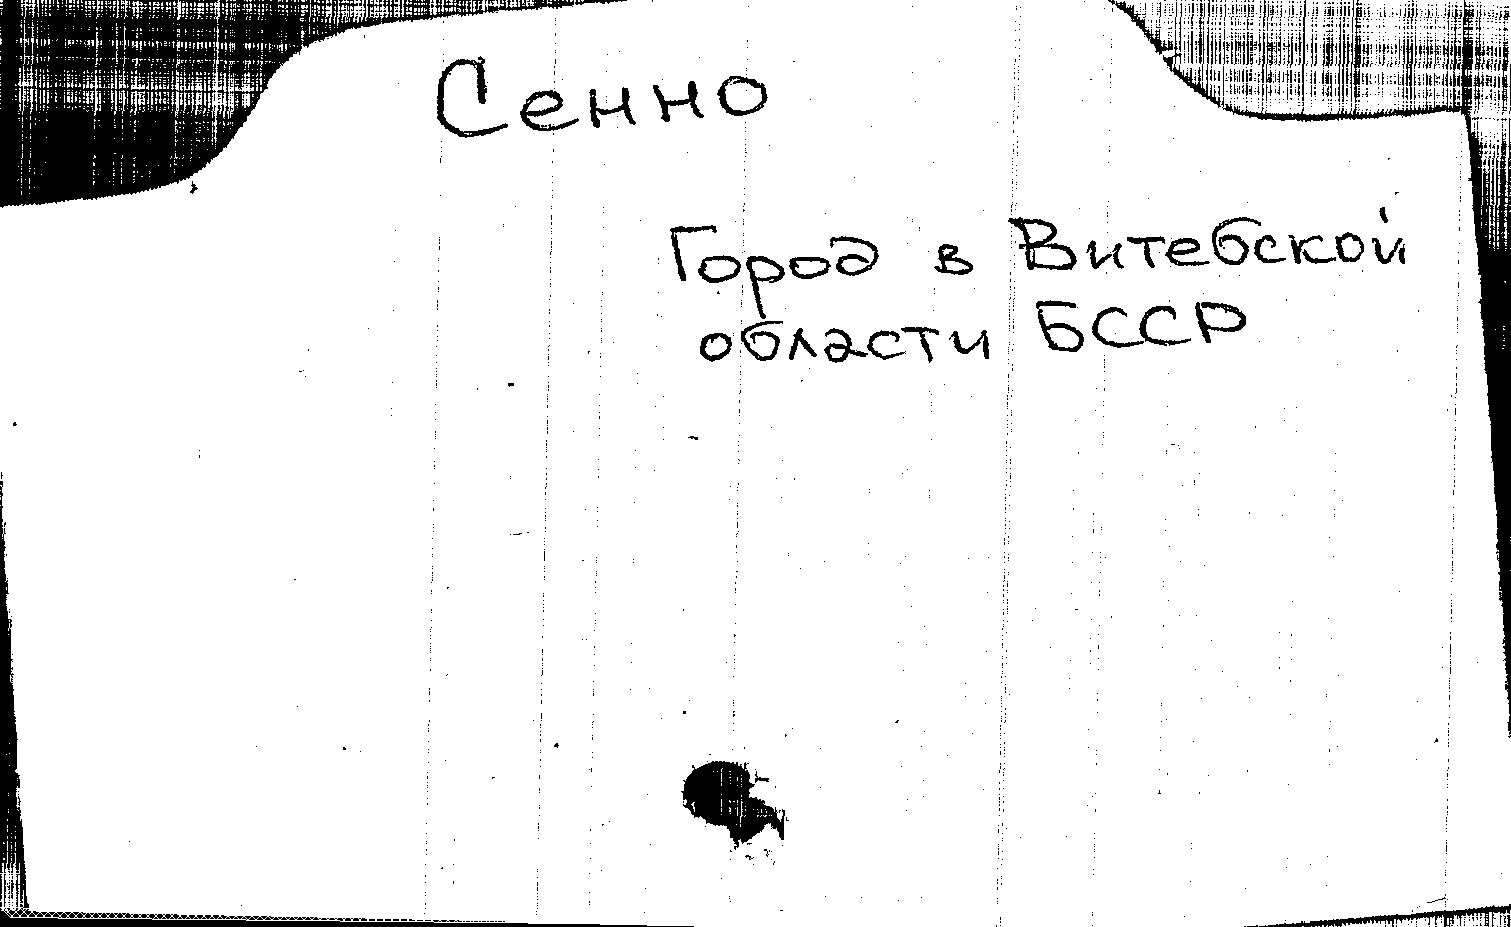 Сенно
Город в Витебской
области БССР